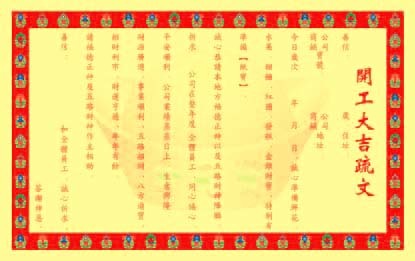 開工大吉疏文
善信 歲 住址
公司 公司
商舖 寶號 商舖 地址
今日歲次 年 月 日 誠心準備鮮花
水果 甜糖 紅圓 發粿 金銀財寶 特別有
準備【紙寶】
誠心恭請本地方福德正神以及五路財神降臨
祈求 公司在整年度 全體員工 同心協心
平安順利 公司業績蒸蒸日上 生意興隆
財源廣進 事業順利 五路招財 八方進寶
招財利市 財運亨通 年年有餘
請福德正神及五路財神作主相助
善信 和全體員工 誠心祈求
答謝神恩